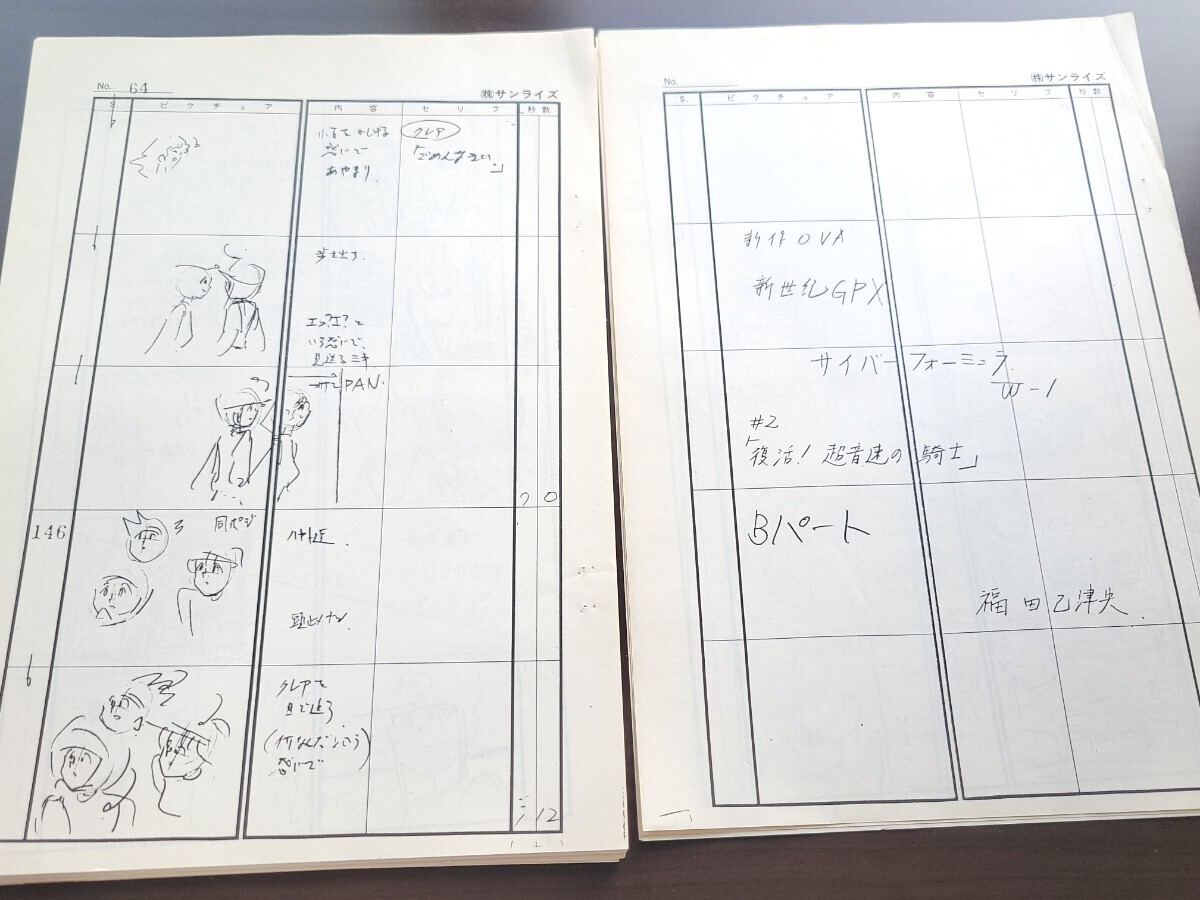 No. 64
㈱サンライズ
S. ピクチュア 内容 セリフ 秒数
小首をかしげる
感じで
あやまり.
クレア
「ごめんなさい.」
歩き出す.
エッ?エ?と
いう感じで、
見送るミキ
PAN.
7 0
146
同ポジ
ハヤト達.
クレアを
目で追う
(何なんだという)
感じで
3 12
No.
㈱サンライズ
S. ピクチュア 内容 セリフ 秒数
新作OVA
新世紀GPX
サイバーフォーミュラ
#2
「復活! 超音速の騎士」
Bパート
福田己津央